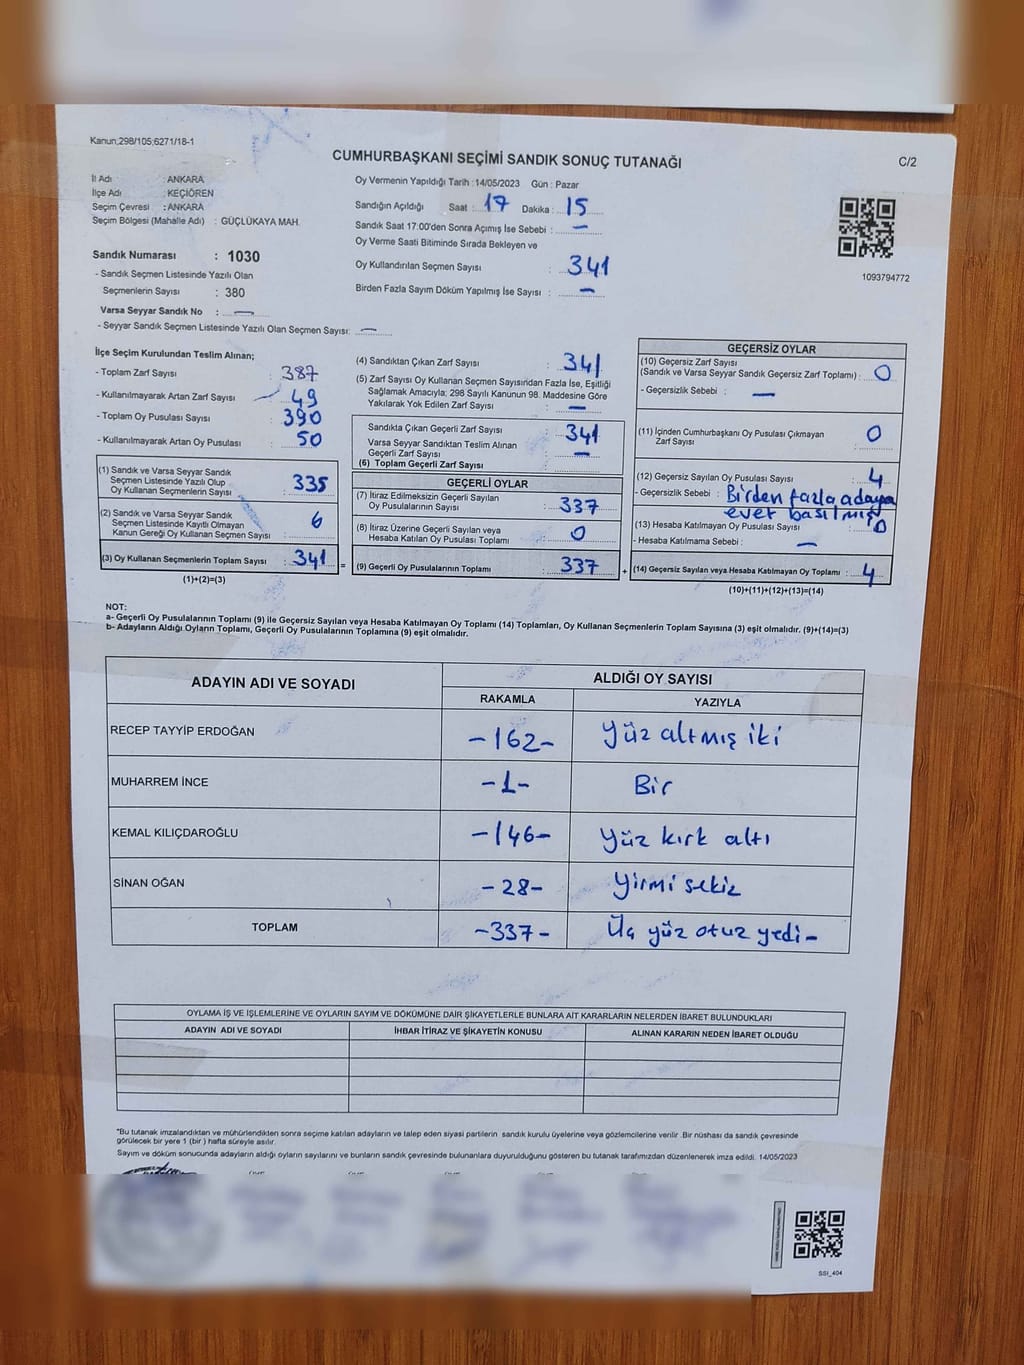 Kanun;298/105;6271/18-1
CUMHURBAŞKANI SEÇİMİ SANDIK SONUÇ TUTANAĞI
C/2
İl Adı : ANKARA
İlçe Adı : KEÇİÖREN
Seçim Çevresi : ANKARA
Seçim Bölgesi (Mahalle Adı) : GÜÇLÜKAYA MAH.
Sandık Numarası : 1030
- Sandık Seçmen Listesinde Yazılı Olan
Seçmenlerin Sayısı : 380
Varsa Seyyar Sandık No : —
- Seyyar Sandık Seçmen Listesinde Yazılı Olan Seçmen Sayısı: —
Oy Vermenin Yapıldığı Tarih : 14/05/2023 Gün : Pazar
Sandığın Açıldığı Saat : 17 Dakika : 15
Sandık Saat 17:00'den Sonra Açımış İse Sebebi : —
Oy Verme Saati Bitiminde Sırada Bekleyen ve
Oy Kullandırılan Seçmen Sayısı : 341
Birden Fazla Sayım Döküm Yapılmış İse Sayısı : —
1093794772
İlçe Seçim Kurulundan Teslim Alınan;
- Toplam Zarf Sayısı : 387
- Kullanılmayarak Artan Zarf Sayısı : 49
- Toplam Oy Pusulası Sayısı : 390
- Kullanılmayarak Artan Oy Pusulası : 50
(1) Sandık ve Varsa Seyyar Sandık
Seçmen Listesinde Yazılı Olup
Oy Kullanan Seçmenlerin Sayısı : 335
(2) Sandık ve Varsa Seyyar Sandık
Seçmen Listesinde Kayıtlı Olmayan
Kanun Gereği Oy Kullanan Seçmen Sayısı : 6
(3) Oy Kullanan Seçmenlerin Toplam Sayısı : 341 =
(1)+(2)=(3)
(4) Sandıktan Çıkan Zarf Sayısı : 341
(5) Zarf Sayısı Oy Kullanan Seçmen Sayısından Fazla İse, Eşitliği
Sağlamak Amacıyla; 298 Sayılı Kanunun 98. Maddesine Göre
Yakılarak Yok Edilen Zarf Sayısı : —
Sandıkta Çıkan Geçerli Zarf Sayısı : 341
Varsa Seyyar Sandıktan Teslim Alınan
Geçerli Zarf Sayısı : —
(6) Toplam Geçerli Zarf Sayısı :
GEÇERLİ OYLAR
(7) İtiraz Edilmeksizin Geçerli Sayılan
Oy Pusulalarının Sayısı : 337
(8) İtiraz Üzerine Geçerli Sayılan veya
Hesaba Katılan Oy Pusulası Toplamı : 0
(9) Geçerli Oy Pusulalarının Toplamı : 337 +
GEÇERSİZ OYLAR
(10) Geçersiz Zarf Sayısı
(Sandık ve Varsa Seyyar Sandık Geçersiz Zarf Toplamı) : 0
- Geçersizlik Sebebi : —
(11) İçinden Cumhurbaşkanı Oy Pusulası Çıkmayan
Zarf Sayısı : 0
(12) Geçersiz Sayılan Oy Pusulası Sayısı : 4
- Geçersizlik Sebebi : Birden fazla adaya
evet basılmış
(13) Hesaba Katılmayan Oy Pusulası Sayısı : 0
- Hesaba Katılmama Sebebi : —
(14) Geçersiz Sayılan veya Hesaba Katılmayan Oy Toplamı : 4
(10)+(11)+(12)+(13)=(14)
NOT:
a- Geçerli Oy Pusulalarının Toplamı (9) ile Geçersiz Sayılan veya Hesaba Katılmayan Oy Toplamı (14) Toplamları, Oy Kullanan Seçmenlerin Toplam Sayısına (3) eşit olmalıdır. (9)+(14)=(3)
b- Adayların Aldığı Oyların Toplamı, Geçerli Oy Pusulalarının Toplamına (9) eşit olmalıdır.
ADAYIN ADI VE SOYADI ALDIĞI OY SAYISI
RAKAMLA YAZIYLA
RECEP TAYYİP ERDOĞAN -162- Yüz altmış iki
MUHARREM İNCE -1- Bir
KEMAL KILIÇDAROĞLU -146- Yüz kırk altı
SİNAN OĞAN -28- Yirmi sekiz
TOPLAM -337- Üç yüz otuz yedi-
OYLAMA İŞ VE İŞLEMLERİNE VE OYLARIN SAYIM VE DÖKÜMÜNE DAİR ŞİKAYETLERLE BUNLARA AİT KARARLARIN NELERDEN İBARET BULUNDUKLARI
ADAYIN ADI VE SOYADI İHBAR İTİRAZ VE ŞİKAYETİN KONUSU ALINAN KARARIN NEDEN İBARET OLDUĞU
*Bu tutanak imzalandıktan ve mühürlendikten sonra seçime katılan adayların ve talep eden siyasi partilerin sandık kurulu üyelerine veya gözlemcilerine verilir .Bir nüshası da sandık çevresinde
görülecek bir yere 1 (bir ) hafta süreyle asılır.
Sayım ve döküm sonucunda adayların aldığı oyların sayılarını ve bunların sandık çevresinde bulunanlara duyurulduğunu gösteren bu tutanak tarafımızdan düzenlenerek imza edildi. 14/05/2023
SSI_404